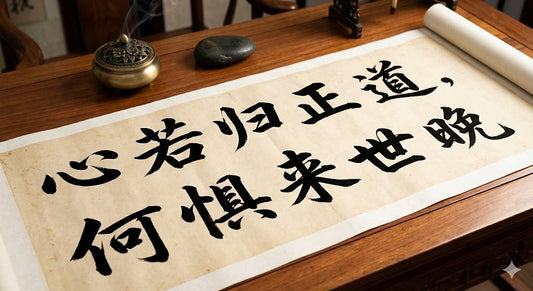 心若归正道，
何惧来世晚